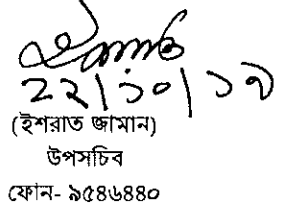 ২২|১০|১৭
(ইশরাত জামান)
উপসচিব
ফোন- ৯৫৪৬৪৪০